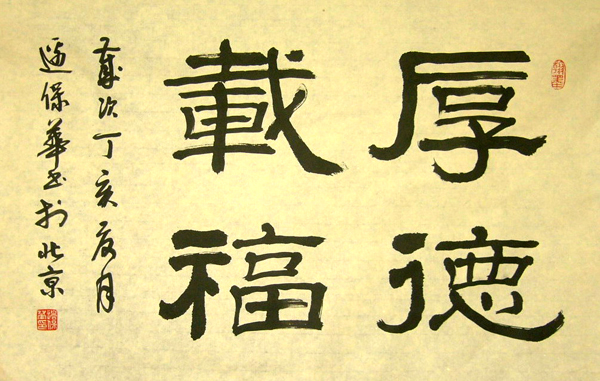 厚德
載福
歲次丁亥夏月
保華书於北京